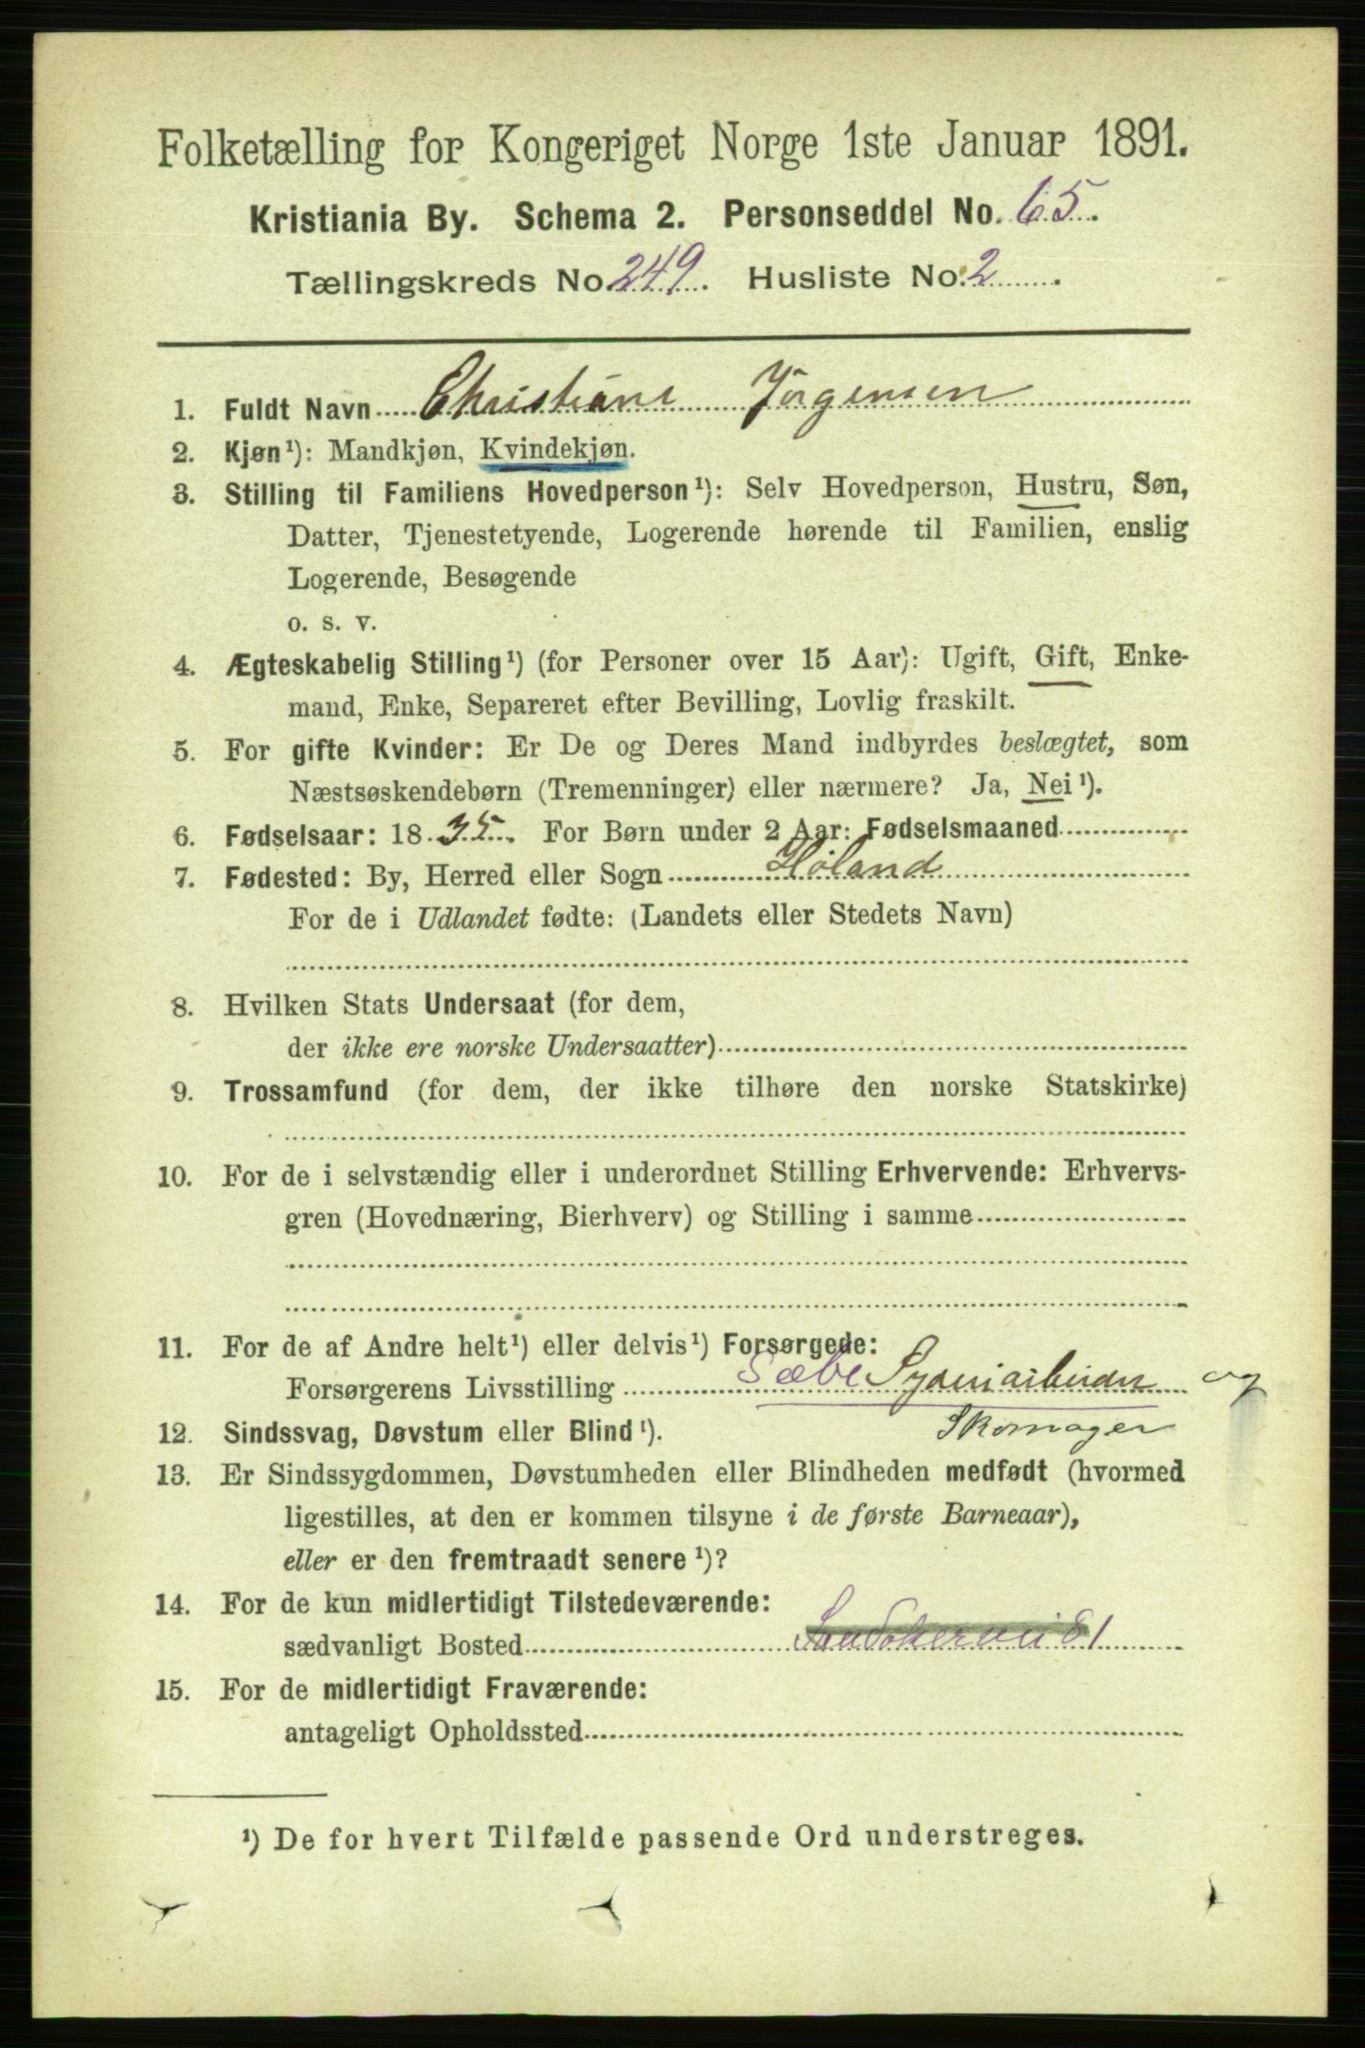 Folketælling for Kongeriget Norge 1ste Januar 1891.
Kristiania By. Schema 2. Personseddel No. 65.
Tællingskreds No. 249. Husliste No. 2.
1. Fuldt Navn Christiane Jörgensen
2. Kjøn¹): Mandkjøn, Kvindekjøn.
3. Stilling til Familiens Hovedperson¹): Selv Hovedperson, Hustru, Søn,
Datter, Tjenestetyende, Logerende hørende til Familien, enslig
Logerende, Besøgende
o. s. v.
4. Ægteskabelig Stilling¹) (for Personer over 15 Aar): Ugift, Gift, Enke-
mand, Enke, Separeret efter Bevilling, Lovlig fraskilt.
5. For gifte Kvinder: Er De og Deres Mand indbyrdes beslægtet, som
Næstsøskendebørn (Tremenninger) eller nærmere? Ja, Nei¹).
6. Fødselsaar: 1835. For Børn under 2 Aar: Fødselsmaaned
7. Fødested: By, Herred eller Sogn Höland
For de i Udlandet fødte: (Landets eller Stedets Navn)
8. Hvilken Stats Undersaat (for dem,
der ikke ere norske Undersaatter)
9. Trossamfund (for dem, der ikke tilhøre den norske Statskirke)
10. For de i selvstændig eller i underordnet Stilling Erhvervende: Erhvervs-
gren (Hovednæring, Bierhverv) og Stilling i samme
11. For de af Andre helt¹) eller delvis¹) Forsørgede:
Forsørgerens Livsstilling Sæbe og
12. Sindssvag, Døvstum eller Blind¹). Skomager
13. Er Sindssygdommen, Døvstumheden eller Blindheden medfødt (hvormed
ligestilles, at den er kommen tilsyne i de første Barneaar),
eller er den fremtraadt senere¹)?
14. For de kun midlertidigt Tilstedeværende:
sædvanligt Bosted 81
15. For de midlertidigt Fraværende:
antageligt Opholdssted
¹) De for hvert Tilfælde passende Ord understreges.